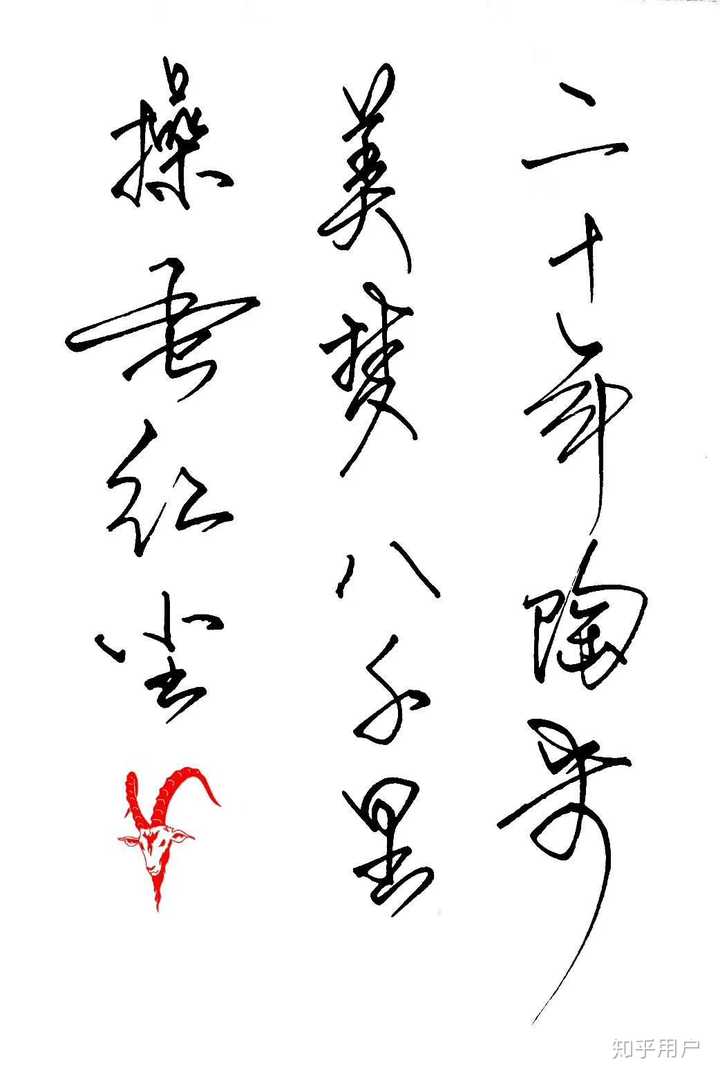 二十年陶
美八千里
操红尘
知乎用户